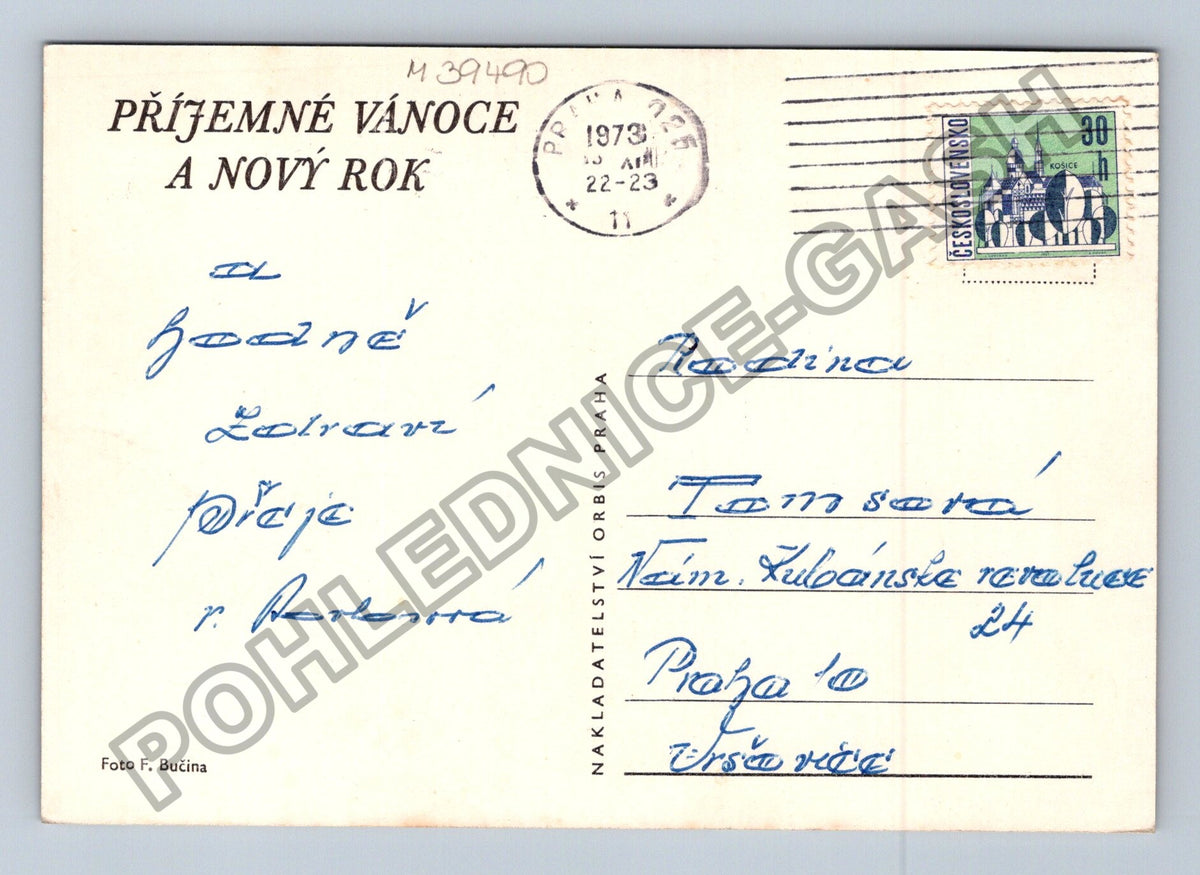 M 39490
PŘÍJEMNÉ VÁNOCE
A NOVÝ ROK
PRAHA 025
1973
XII
22-23
* 11 *
ČESKOSLOVENSKO
30
h
KOŠICE
a
hodně
zdraví
přeje
r.
Foto F. Bučina
NAKLADATELSTVÍ ORBIS PRAHA
Rodina
Tomsová
Nám. Kubánske revoluce
24
Praha 10
Vršovice
POHLEDNICE-GASH